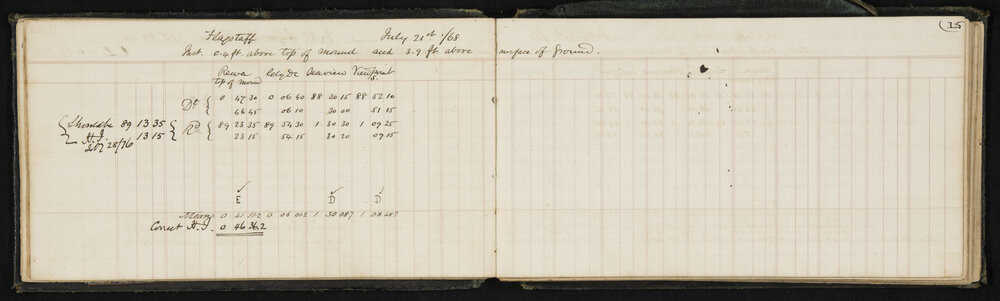 15
Flagstaff July 21st /68
Inst. 0.4 ft. above top of mound and 3.9 ft above surface of Ground.
Rewa Clyde Seaview View
top of Mound
Dt { 0 47 30 0 06 40 88 30 15 88 52 10
46 45 06 10 30 00 51 15
{ 89 13 35 { 89 23 35 89 54 30 1 30 30 1 09 25
H.I. 13 15 23 15 54 15 30 20 09 15
28/76
E D D
Means 0 41 51.2 0 06 01.2 1 30 08.7 1 08 48.7
Correct H.I. 0 46 36.2